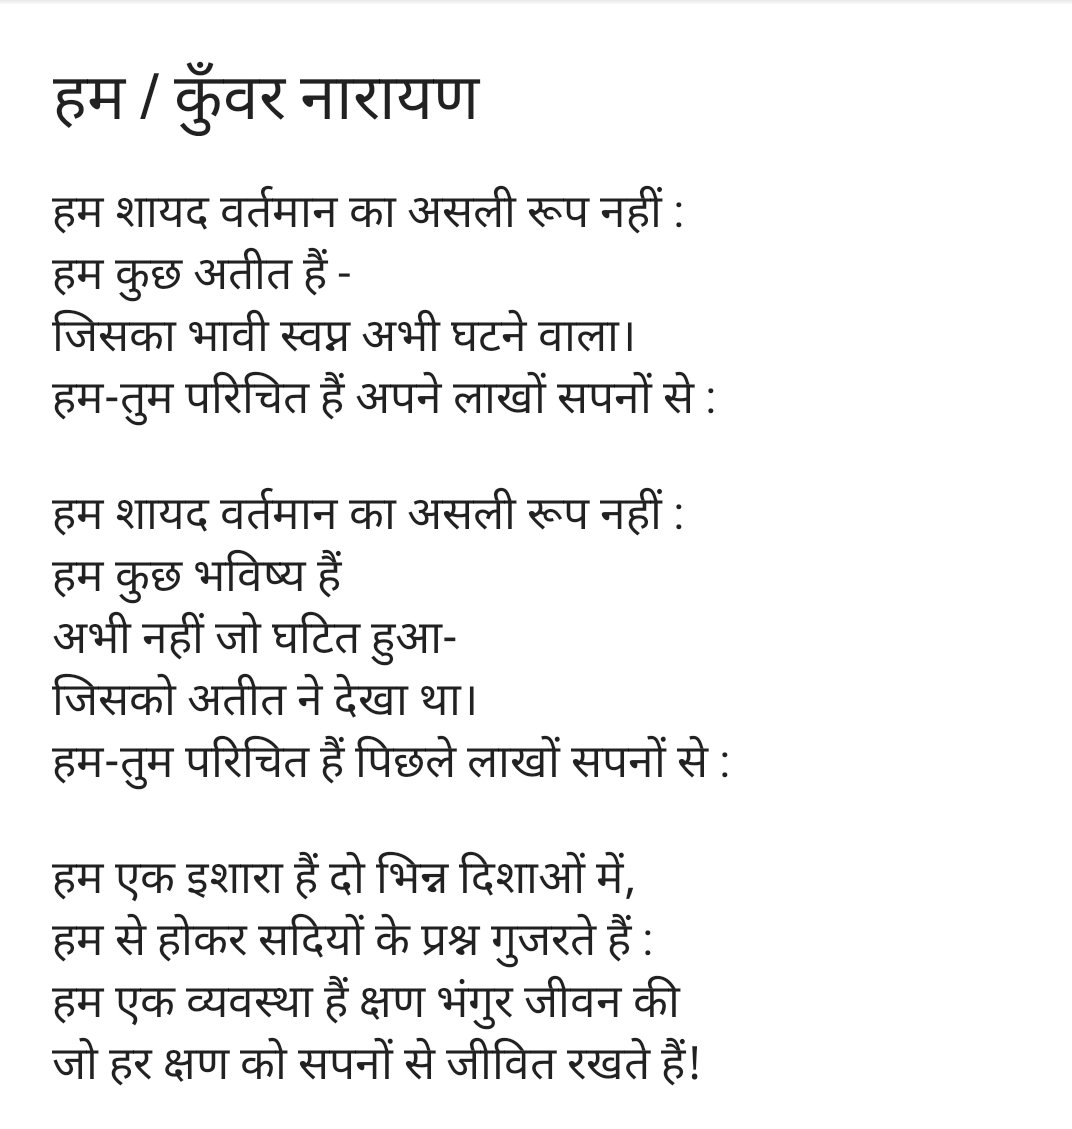 हम / कुँवर नारायण
हम शायद वर्तमान का असली रूप नहीं :
हम कुछ अतीत हैं -
जिसका भावी स्वप्न अभी घटने वाला।
हम-तुम परिचित हैं अपने लाखों सपनों से :
हम शायद वर्तमान का असली रूप नहीं :
हम कुछ भविष्य हैं
अभी नहीं जो घटित हुआ-
जिसको अतीत ने देखा था।
हम-तुम परिचित हैं पिछले लाखों सपनों से :
हम एक इशारा हैं दो भिन्न दिशाओं में,
हम से होकर सदियों के प्रश्न गुजरते हैं :
हम एक व्यवस्था हैं क्षण भंगुर जीवन की
जो हर क्षण को सपनों से जीवित रखते हैं!